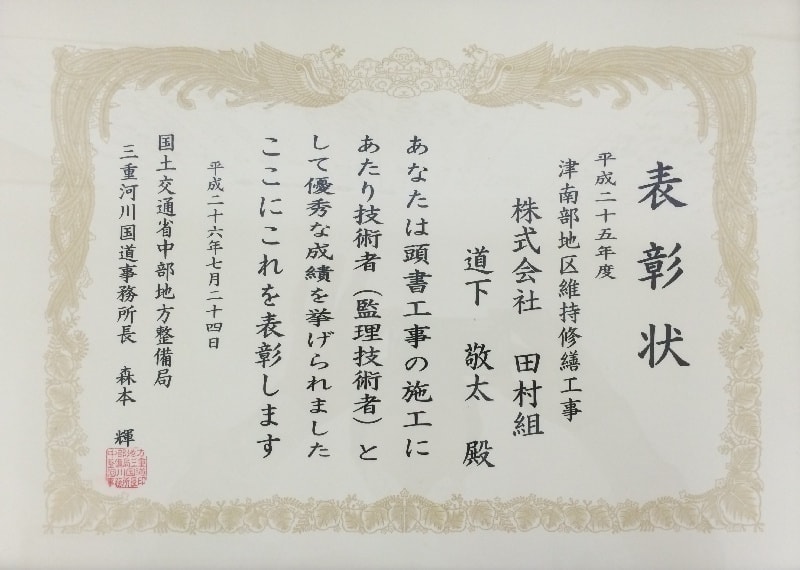 表彰状
平成二十五年度
津南部地区維持修繕工事
株式会社 田村組
道下 敬太 殿
あなたは頭書工事の施工に
あたり技術者（監理技術者）と
して優秀な成績を挙げられました
ここにこれを表彰します
平成二十六年七月二十四日
国土交通省中部地方整備局
三重河川国道事務所長 森本 輝